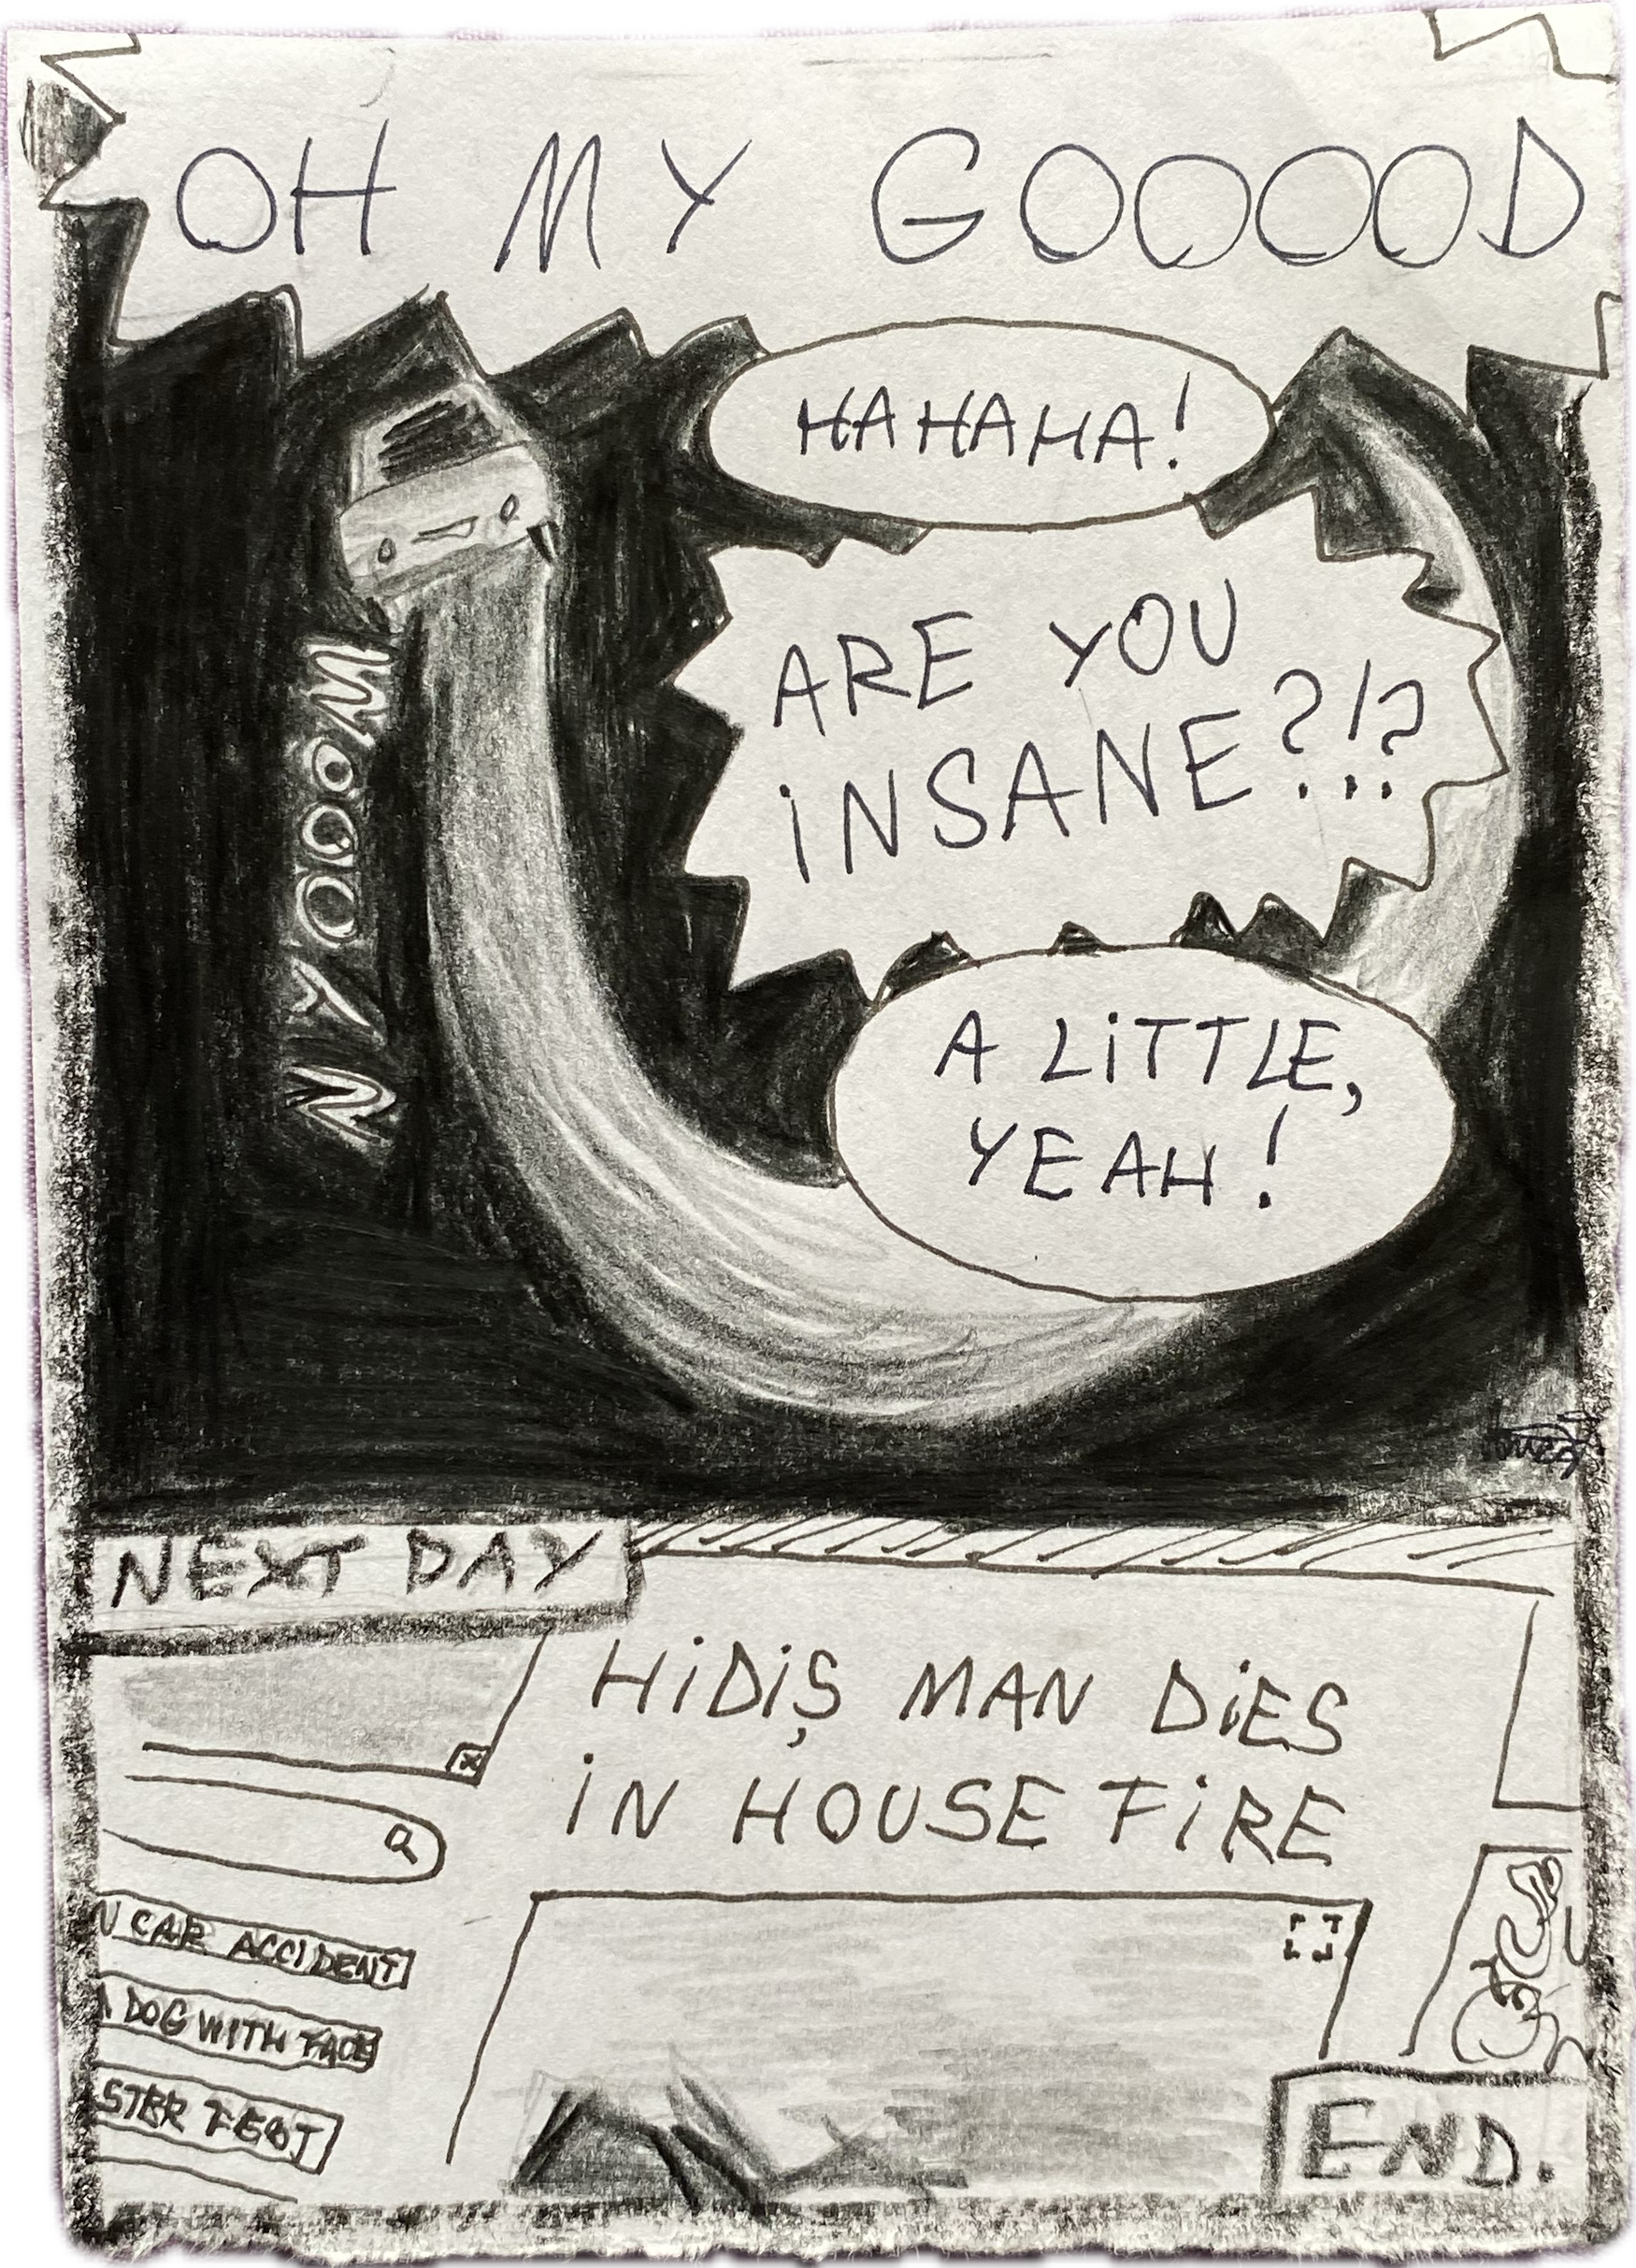 OH MY GOOOOD
HAHAHA!
ARE YOU
iNSANE?!?...
A LiTTLE,
YEAH!
NEXT DAY
HiDiȘ MAN DiES
iN HOUSE FiRE
N CAR ACCIDENT
A DOG WITH FACE
END.